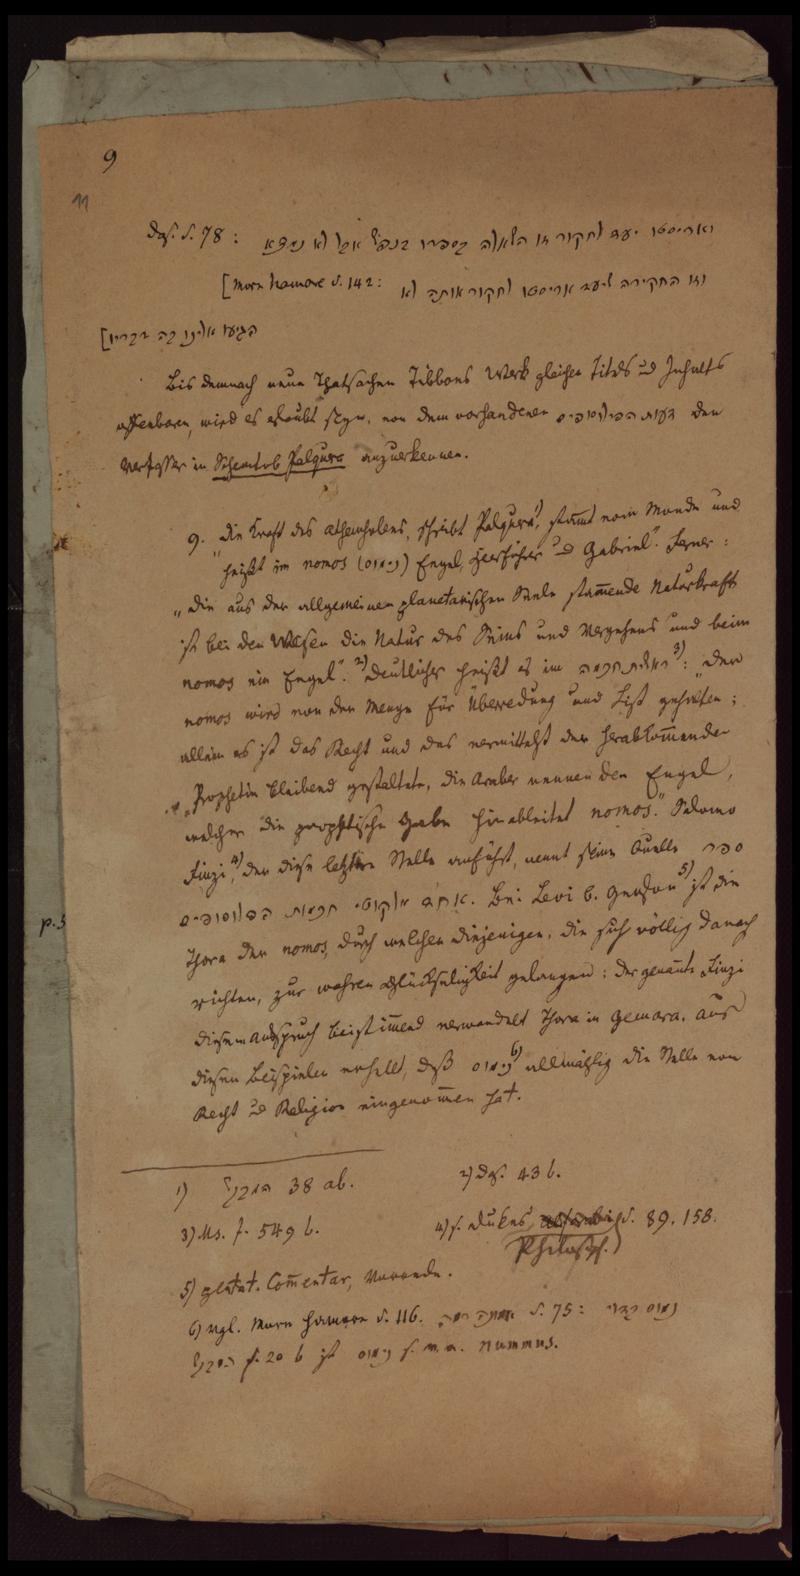 9
11
Das. S. 78: ואריסטו יעד לחקור זו השאלה בספרו בנפש אבל לא נמצא
[More hamore S. 142: וזו החקירה שיעד אריסטו לחקור אותה לא
הגיעו אלינו בה דבריו]
Bis demnach neue Thatsachen Tibbons Werk gleichen Titels und Inhalts
offenbaren, wird es erlaubt seyn, von dem vorhandenen דעות הפילוסופים den
Verfasser in Schemtob Palquera anzuerkennen.
9. „Die Kraft des Athemholens, schreibt Palquera 1), stammt vom Monde und
heißt im nomos (נימוס) Engel, Heerführer und Gabriel“. Ferner:
„die aus der allgemeinen planetarischen Seele stammende Naturkraft
ist bei den Weisen die Natur des Seins und Vergehens und beim
nomos ein Engel“. 2) Deutlicher heißt es im ראשית חכמה 3): „Der
nomos wird von der Menge für Überredung und List gehalten;
allein es ist das Recht und das vermittelst der herabkommenden
Prophetie bleibend gestaltete, die Araber nennen den Engel,
welcher die prophetische Gabe hinableitet nomos.“ Salomo
Finzi 4), der diese letztere Stelle anführt, nennt seine Quelle ספר
אחד מלקוטי חכמות הפילוסופים. Bei Levi b. Gerson 5) ist die
Thora der nomos, durch welchen diejenigen, die sich völlig danach
richten, zur wahren Glückseligkeit gelangen: der genannte Finzi
diesem Ausspruch beistimmend verwandelt Thora in Gemara. Aus
diesen Beispielen erhellt, daß נימוס 6) allmählig die Stelle von
Recht und Religion eingenommen hat.
p. 3
1) המבקש 38 ab.
2) Das. 43 b.
3) Ms. f. 549 b.
4) s. Dukes Philosoph. S. 89. 158.
5) Pentat. Commentar, Vorrede.
6) vgl. More hamore S. 116. אמונה רמה S. 75: נמוס
המבקש f. 20 b ist נימוס s. v. a. nummus.